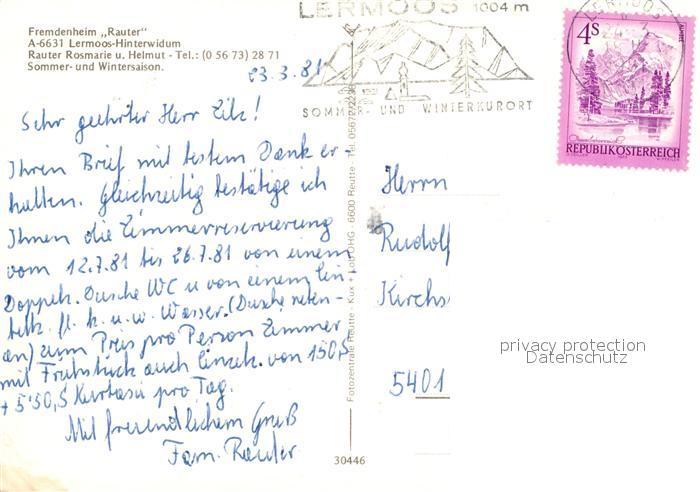 Fremdenheim „Rauter"
A-6631 Lermoos-Hinterwidum
Rauter Rosmarie u. Helmut - Tel.: (0 56 73) 28 71
Sommer- und Wintersaison.
23.3.81
Sehr geehrter Herr Zilk!
Ihren Brief mit bestem Dank er-
halten. Gleichzeitig bestätige ich
Ihnen die Zimmerreservierung
vom 12.7.81 bis 26.7.81 von einem
Doppelz. Dusche WC u von einem Ein
bettz. fl. k. u. w. Wasser. (Dusche neben-
an) zum Preis pro Person Zimmer
mit Frühstück auch Einzelz. von 150 S
+ 5'50,S Kurtaxe pro Tag.
Mit freundlichem Gruß
Fam. Rauter
Fotozentrale Reutte - Kux + Lob OHG - 6600 Reutte - Tel. 05672/2236
30446
LERMOOS 1004 m
SOMMER- UND WINTERKURORT
LERMOOS
4S
ALMSEE
REPUBLIK ÖSTERREICH
Herrn
Rudolf
Kirchs
5401
privacy protection
Datenschutz